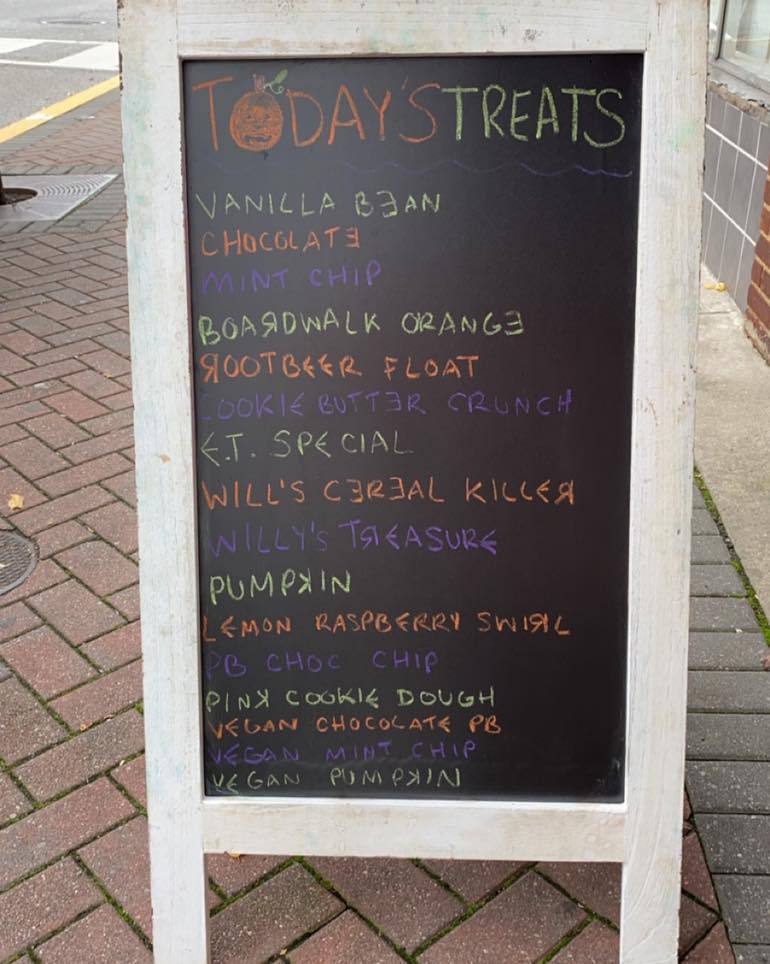 TODAY'S TREATS
VANILLA BEAN
CHOCOLATE
MINT CHIP
BOARDWALK ORANGE
ROOTBEER FLOAT
COOKIE BUTTER CRUNCH
E.T. SPECIAL
WILL'S CEREAL KILLER
WILLY'S TREASURE
PUMPKIN
LEMON RASPBERRY SWIRL
PB CHOC CHIP
PINK COOKIE DOUGH
VEGAN CHOCOLATE PB
VEGAN MINT CHIP
VEGAN PUMPKIN